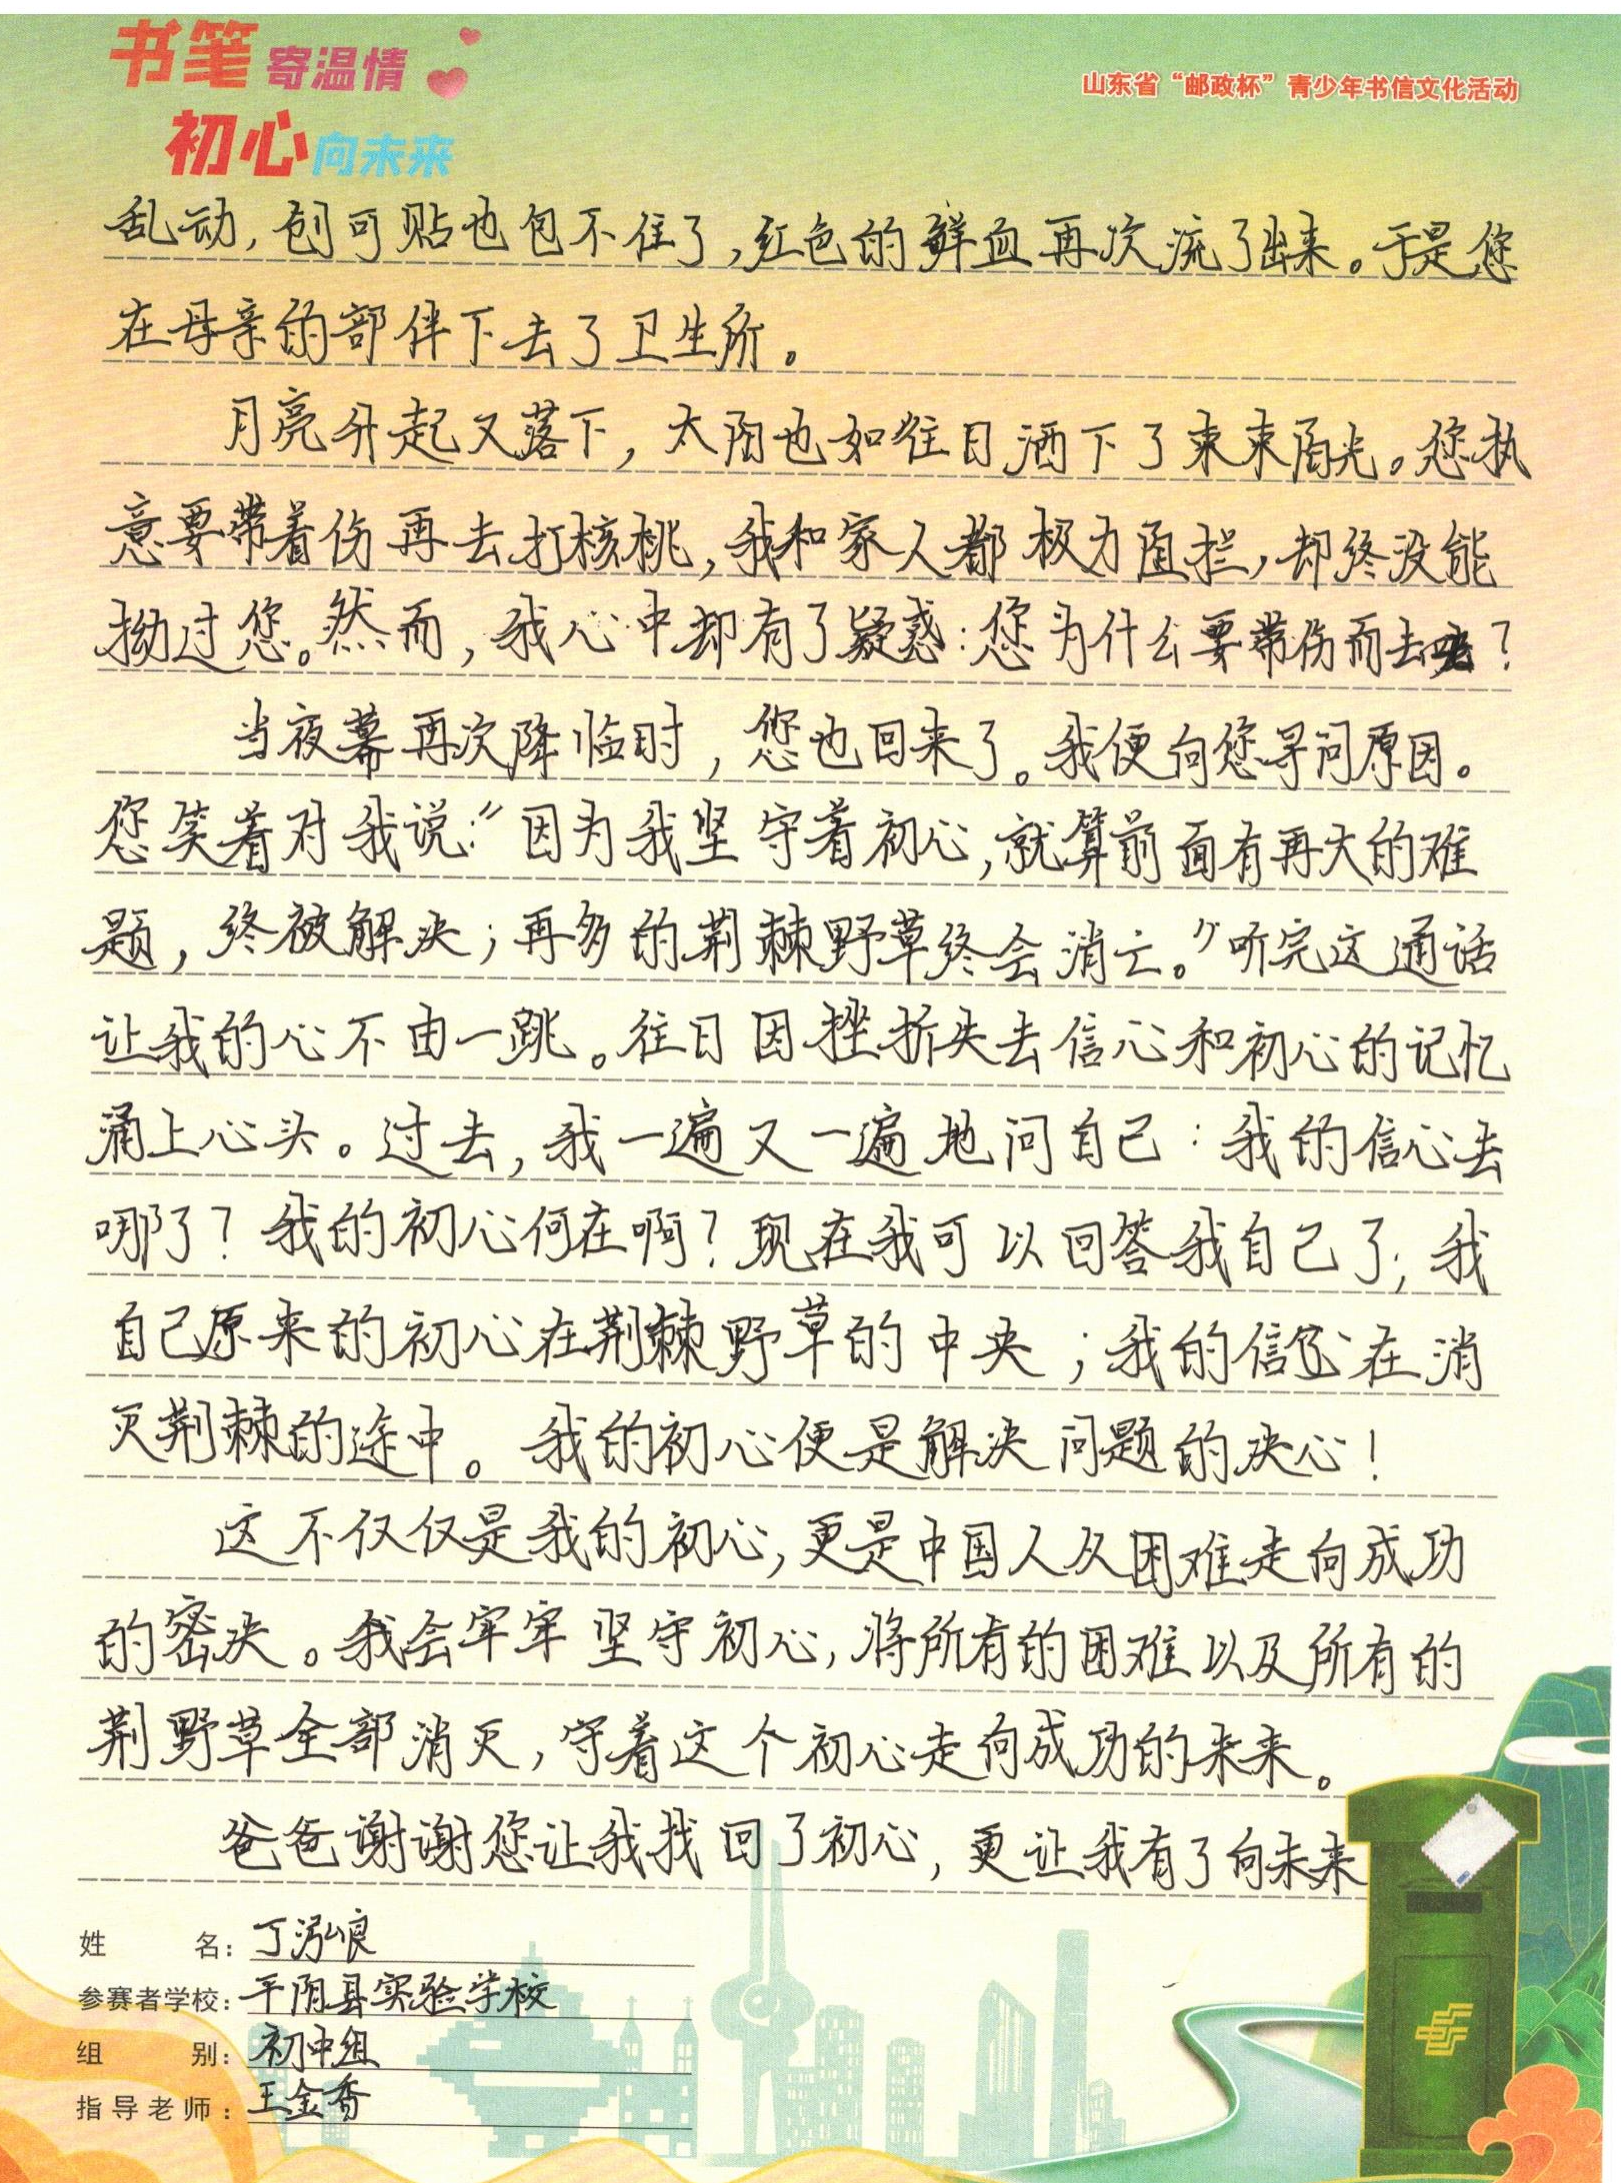 书笔寄温情
初心向未来
山东省“邮政杯”青少年书信文化活动
乱动，创可贴也包不住了，红色的鲜血再次流了出来。于是您
在母亲的部伴下去了卫生所。
月亮升起又落下，太阳也如往日洒下了束束阳光。您执
意要带着伤再去打核桃，我和家人都极力阻拦，却终没能
拗过您。然而，我心中却有了疑惑：您为什么要带伤而去？
当夜幕再次降临时，您也回来了。我便向您寻问原因。
您笑着对我说：“因为我坚守着初心，就算前面有再大的难
题，终被解决；再多的荆棘野草终会消亡。”听完这通话
让我的心不由一跳。往日因挫折失去信心和初心的记忆
涌上心头。过去，我一遍又一遍地问自己：我的信心去
哪了？我的初心何在啊？现在我可以回答我自己了，我
自己原来的初心在荆棘野草的中央；我的信心在消
灭荆棘的途中。我的初心便是解决问题的决心！
这不仅仅是我的初心，更是中国人从困难走向成功
的密决。我会牢牢坚守初心，将所有的困难以及所有的
荆野草全部消灭，守着这个初心走向成功的未来。
爸爸谢谢您让我找回了初心，更让我有了向未来
姓名：丁泓
参赛者学校：平阴县实验学校
组别：初中组
指导老师：王金香